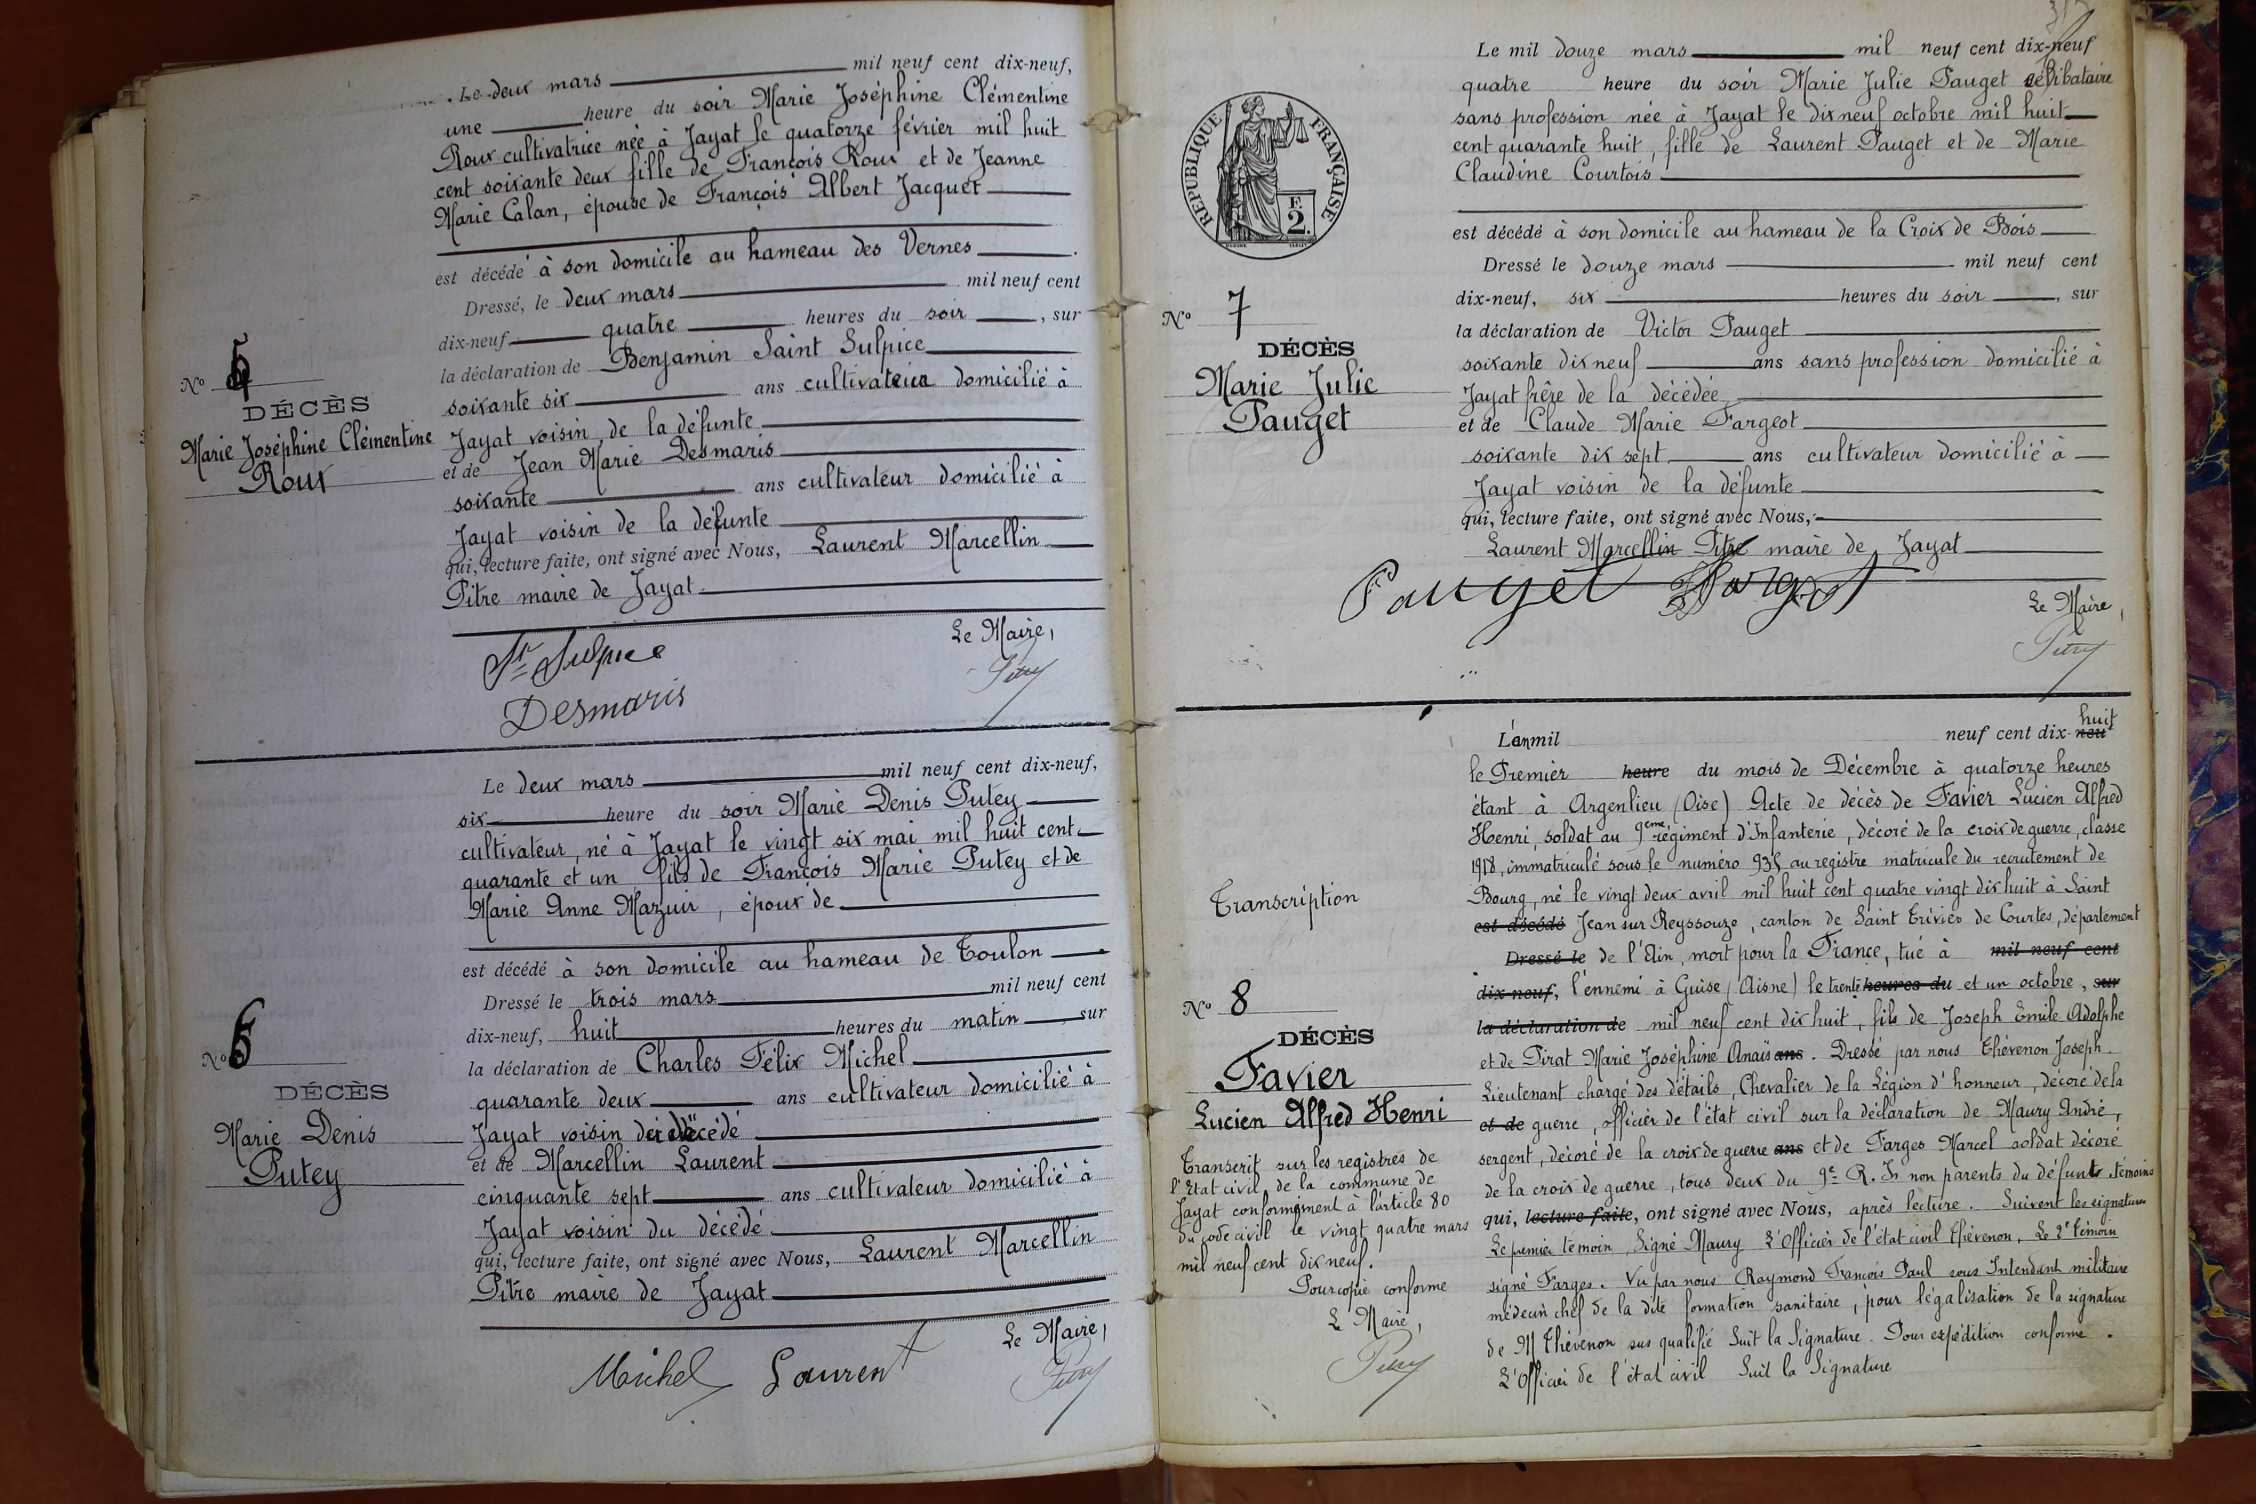 Le deux mars mil neuf cent dix-neuf,
une heure du soir Marie Joséphine Clémentine
Roux cultivatrice née à Jayat le quatorze février mil huit
cent soixante deux fille de François Roux et de Jeanne
Marie Calan, épouse de François Albert Jacquet
est décédé à son domicile au hameau des Vernes
Dressé, le deux mars mil neuf cent
dix-neuf quatre heures du soir, sur
la déclaration de Benjamin Saint Sulpice
soixante six ans cultivateur domicilié à
Jayat voisin de la défunte
et de Jean Marie Desmaris
soixante ans cultivateur domicilié à
Jayat voisin de la défunte
qui, lecture faite, ont signé avec Nous, Laurent Marcellin
Pitre maire de Jayat
Le Maire,
St Sulpice
Desmaris
Nº 5
DÉCÈS
Marie Joséphine Clémentine
Roux
Le deux mars mil neuf cent dix-neuf,
six heure du soir Marie Denis Putey
cultivateur, né à Jayat le vingt six mai mil huit cent
quarante et un fils de François Marie Putey et de
Marie Anne Mazuir, époux de
est décédé à son domicile au hameau de Toulon
Dressé le trois mars mil neuf cent
dix-neuf, huit heures du matin sur
la déclaration de Charles Félix Michel
quarante deux ans cultivateur domicilié à
Jayat voisin du décédé
et de Marcellin Laurent
cinquante sept ans cultivateur domicilié à
Jayat voisin du décédé
qui, lecture faite, ont signé avec Nous, Laurent Marcellin
Pitre maire de Jayat
Le Maire,
Michel Laurent
Nº 6
DÉCÈS
Marie Denis
Putey
RÉPUBLIQUE FRANÇAISE
F.
2.
Le mil douze mars mil neuf cent dix-neuf
quatre heure du soir Marie Julie Pauget célibataire
sans profession née à Jayat le dix neuf octobre mil huit
cent quarante huit, fille de Laurent Pauget et de Marie
Claudine Courtois
est décédé à son domicile au hameau de la Croix de Bois
Dressé le douze mars mil neuf cent
dix-neuf, six heures du soir, sur
la déclaration de Victor Pauget
soixante dix neuf ans sans profession domicilié à
Jayat frère de la décédée
et de Claude Marie Fargeot
soixante dix sept ans cultivateur domicilié à
Jayat voisin de la défunte
qui, lecture faite, ont signé avec Nous,
Laurent Marcellin Pitre maire de Jayat
Pauget Fargeot
Le Maire,
Nº 7
DÉCÈS
Marie Julie
Pauget
L'an mil neuf cent dix-neuf huit
le Premier heure du mois de Décembre à quatorze heures
étant à Argenlieu (Oise) Acte de décès de Favier Lucien Alfred
Henri, soldat au 9ème régiment d'Infanterie, décoré de la croix de guerre, classe
1918, immatriculé sous le numéro 935 au registre matricule du recrutement de
Bourg, né le vingt deux avril mil huit cent quatre vingt dix huit à Saint
est décédé Jean sur Reyssouze, canton de Saint Trivier de Courtes, département
Dressé le de l'Ain, mort pour la France, tué à mil neuf cent
dix-neuf, l'ennemi à Guise (Aisne) le trente heures du et un octobre, sur
la déclaration de mil neuf cent dix huit, fils de Joseph Emile Adolphe
et de Pirat Marie Joséphine Anaïs ans. Dressé par nous Thévenon Joseph
Lieutenant chargé des détails, Chevalier de la Légion d'honneur, décoré de la
et de guerre, officier de l'état civil sur la déclaration de Maury André,
sergent, décoré de la croix de guerre ans et de Farges Marcel soldat décoré
de la croix de guerre, tous deux du 9e R. I. non parents du défunt témoins
qui, lecture faite, ont signé avec Nous, après lecture. Suivent les signatures
Le premier témoin, Signé Maury L'Officier de l'état civil Thévenon, Le 2e témoin
signé Farges. Vu par nous Raymond François Paul sous Intendant militaire
médecin chef de la dite formation sanitaire, pour légalisation de la signature
de M Thévenon sus qualifié Suit la Signature. Pour expédition conforme.
L'Officier de l'état civil Suit la Signature
Transcription
Nº 8
DÉCÈS
Favier
Lucien Alfred Henri
Transcrit sur les registres de
l'Etat civil de la commune de
Jayat conformément à l'article 80
du code civil le vingt quatre mars
mil neuf cent dix neuf.
Pour copie conforme
Le Maire,